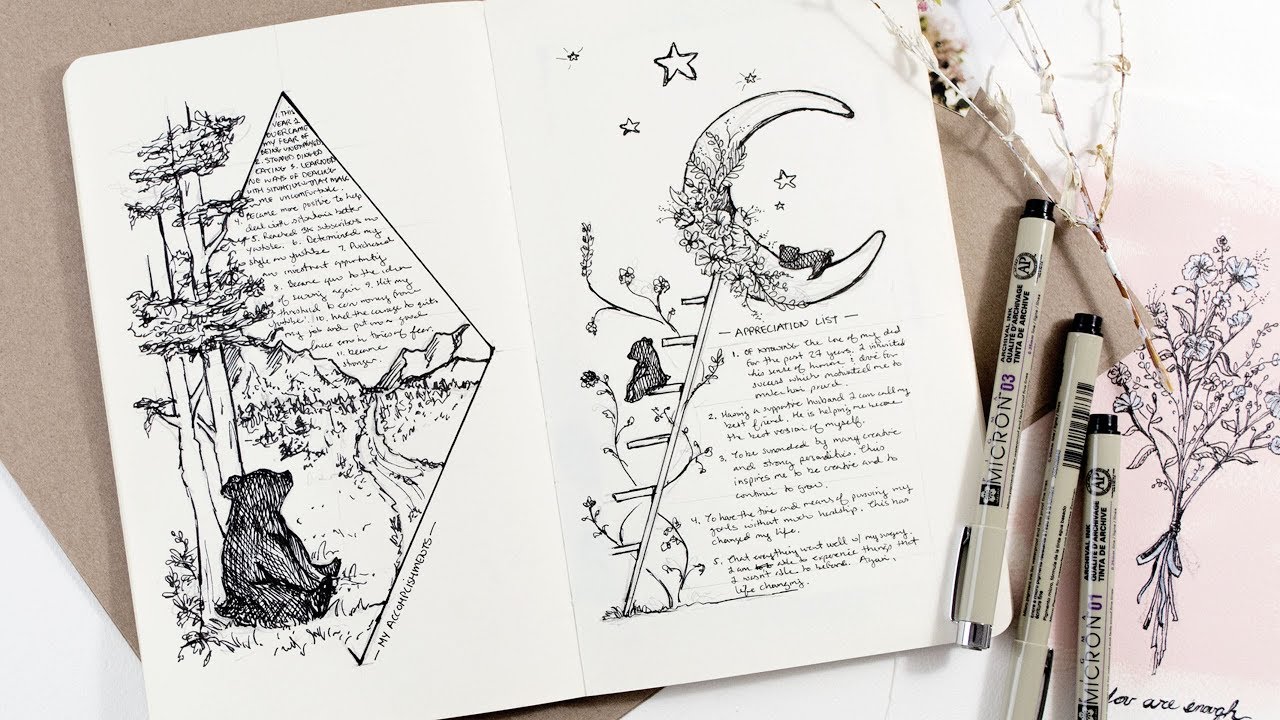 1. THIS
YEAR I
OVERCAME
MY FEAR OF
BEING
2. STOPPED BINGED
EATING 3. LEARNED
NEW WAYS OF DEALING
WITH SITUATIONS THAT MAKE
ME UNCOMFORTABLE.
4. Became more positive to help
deal with better
5. Reached subscribers on
Youtube. 6. Determined my
style on Youtube 7. Purchased
an investment opportunity
8. Became open to the idea
of again 9. Hit my
threshold to earn money from
Youtube. 10. Had the courage to quit
my job and put in a good
even in times of fear.
11. Became
stronger.
MY ACCOMPLISHMENTS
— APPRECIATION LIST —
1. Of knowing the love of my dad
for the past 27 years. I inherited
his sense of humor & drive for
success which motivated me to
make him proud.
2. Having a supportive husband I can call my
best friend. He is helping me become
the best version of myself.
3. To be surrounded by many creative
and strong personalities. This
inspires me to be creative and to
continue to grow.
4. To have the time and means of pursuing my
goals without much hardship. This has
changed my life.
5. That everything went well w/ my surgery.
I am able to experience things that
I wasn't able to before. Again,
life changing.
AP
ARCHIVAL INK
QUALITÉ D'ARCHIVAGE
TINTA DE ARCHIVE
MICRON 03
AP
ARCHIVAL INK
QUALITÉ D'ARCHIVAGE
TINTA DE ARCHIVE
MICRON 01
You are enough